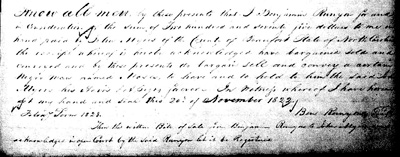 Know all men by these presents that I Benjamin Runyon
consideration of the sum of Two hundred and seventy five dollars to me in
hand paid by John Myers of the County of Beaufort State of North Carolina
the receipt whereof is hereby acknowledged have bargained sold and
conveyed and by these presents do bargain sell and convey a certain
Negro man named Moses to have and to hold to him the said John
Myers his Heirs &c forever In witness whereof I have here
of my hand and seal this 20th of November 1822
Term 1823 Benj Runyon
Then the within Bill of Sale from Benjamin Runyon to John Myers
acknowledged in open Court by the said Runyon let it be Registered